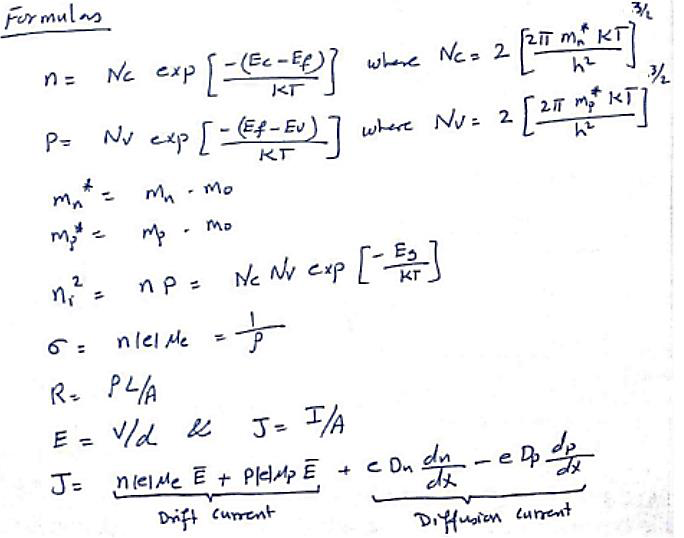 Formulas
n = Nc exp [-(Ec-Ef)/KT] where Nc = 2 [2π mn* KT/h²]^3/2
P = Nv exp [-(Ef-Ev)/KT] where Nv = 2 [2π mp* KT/h²]^3/2
mn* = mn . mo
mp* = mp . mo
ni² = n p = Nc Nv exp [-Eg/KT]
σ = n|e|μe = 1/ρ
R = ρL/A
E = V/d & J = I/A
J = n|e|μe Ē + P|e|μp Ē + e Dn dn/dx - e Dp dp/dx
Drift current Diffusion current